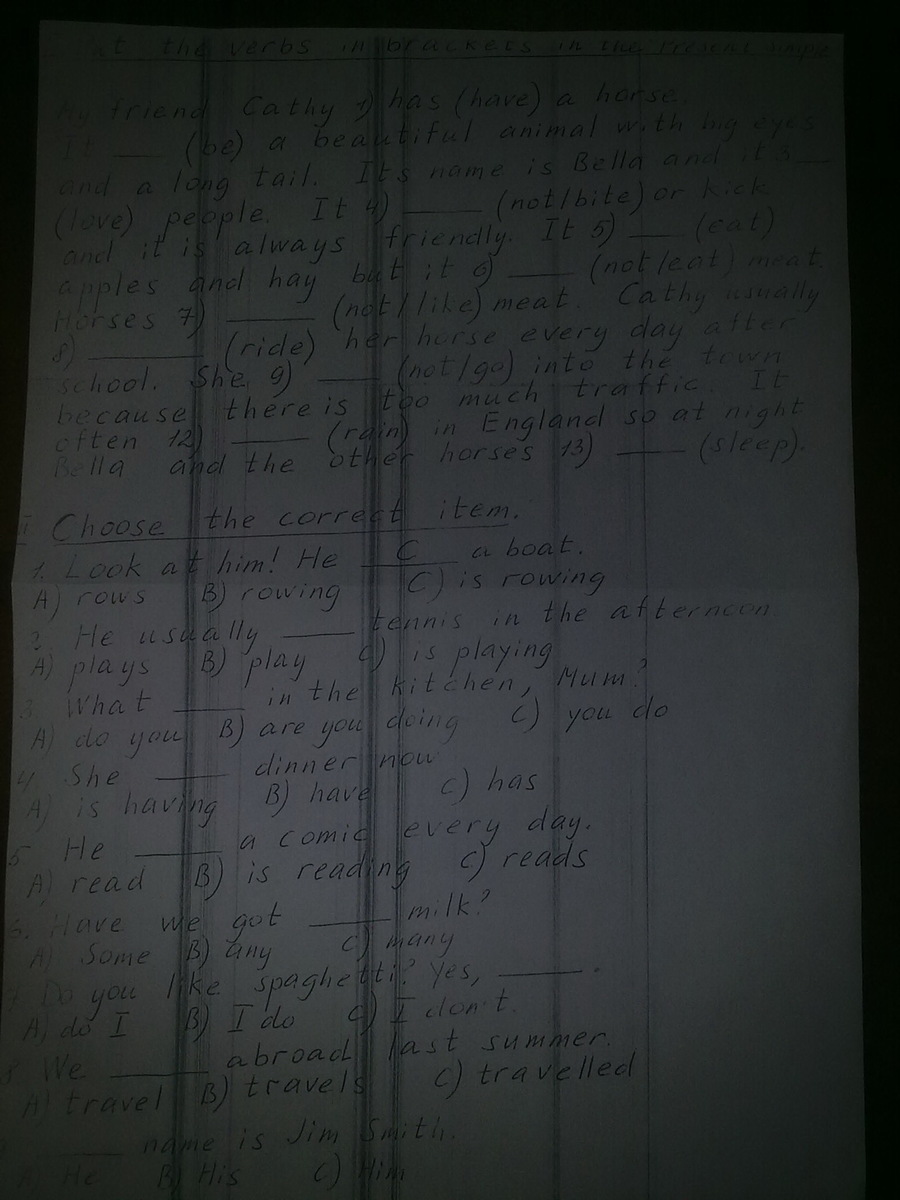 at the verbs in brackets in the present simple
My friend Cathy 1) has (have) a horse.
It ___ (be) a beautiful animal with big eyes
and a long tail. Its name is Bella and it 3 ___
(love) people. It 4) ___ (not/bite) or kick
and it is always friendly. It 5) ___ (eat)
apples and hay but it 6) ___ (not/eat) meat.
Horses 7) ___ (not/like) meat. Cathy usually
8) ___ (ride) her horse every day after
school. She 9) ___ (not/go) into the town
because there is too much traffic. It
often 12) ___ (rain) in England so at night
Bella and the other horses 13) ___ (sleep).
II Choose the correct item.
1. Look at him! He C a boat.
A) rows B) rowing C) is rowing
2. He usually ___ tennis in the afternoon
A) plays B) play C) is playing
3. What ___ in the kitchen, Mum?
A) do you B) are you doing C) you do
4. She ___ dinner now
A) is having B) have C) has
5. He ___ a comic every day.
A) read B) is reading C) reads
6. Have we got ___ milk?
A) Some B) any C) many
7 Do you like spaghetti? Yes, ___.
A) do I B) I do C) I don't.
8 We ___ abroad last summer.
A) travel B) travels C) travelled
___ name is Jim Smith.
A) He B) His C) Him